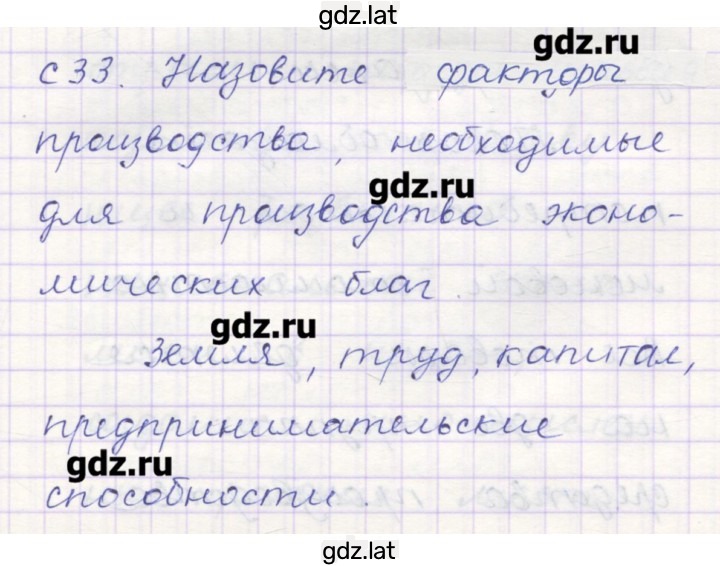 gdz.lat
gdz.ru
с 33. Назовите факторы
производства, необходимые
gdz.ru
для производства эконо-
мических благ.
gdz.ru
Земля, труд, капитал,
предпринимательские
gdz.ru
способности.
gdz.lat